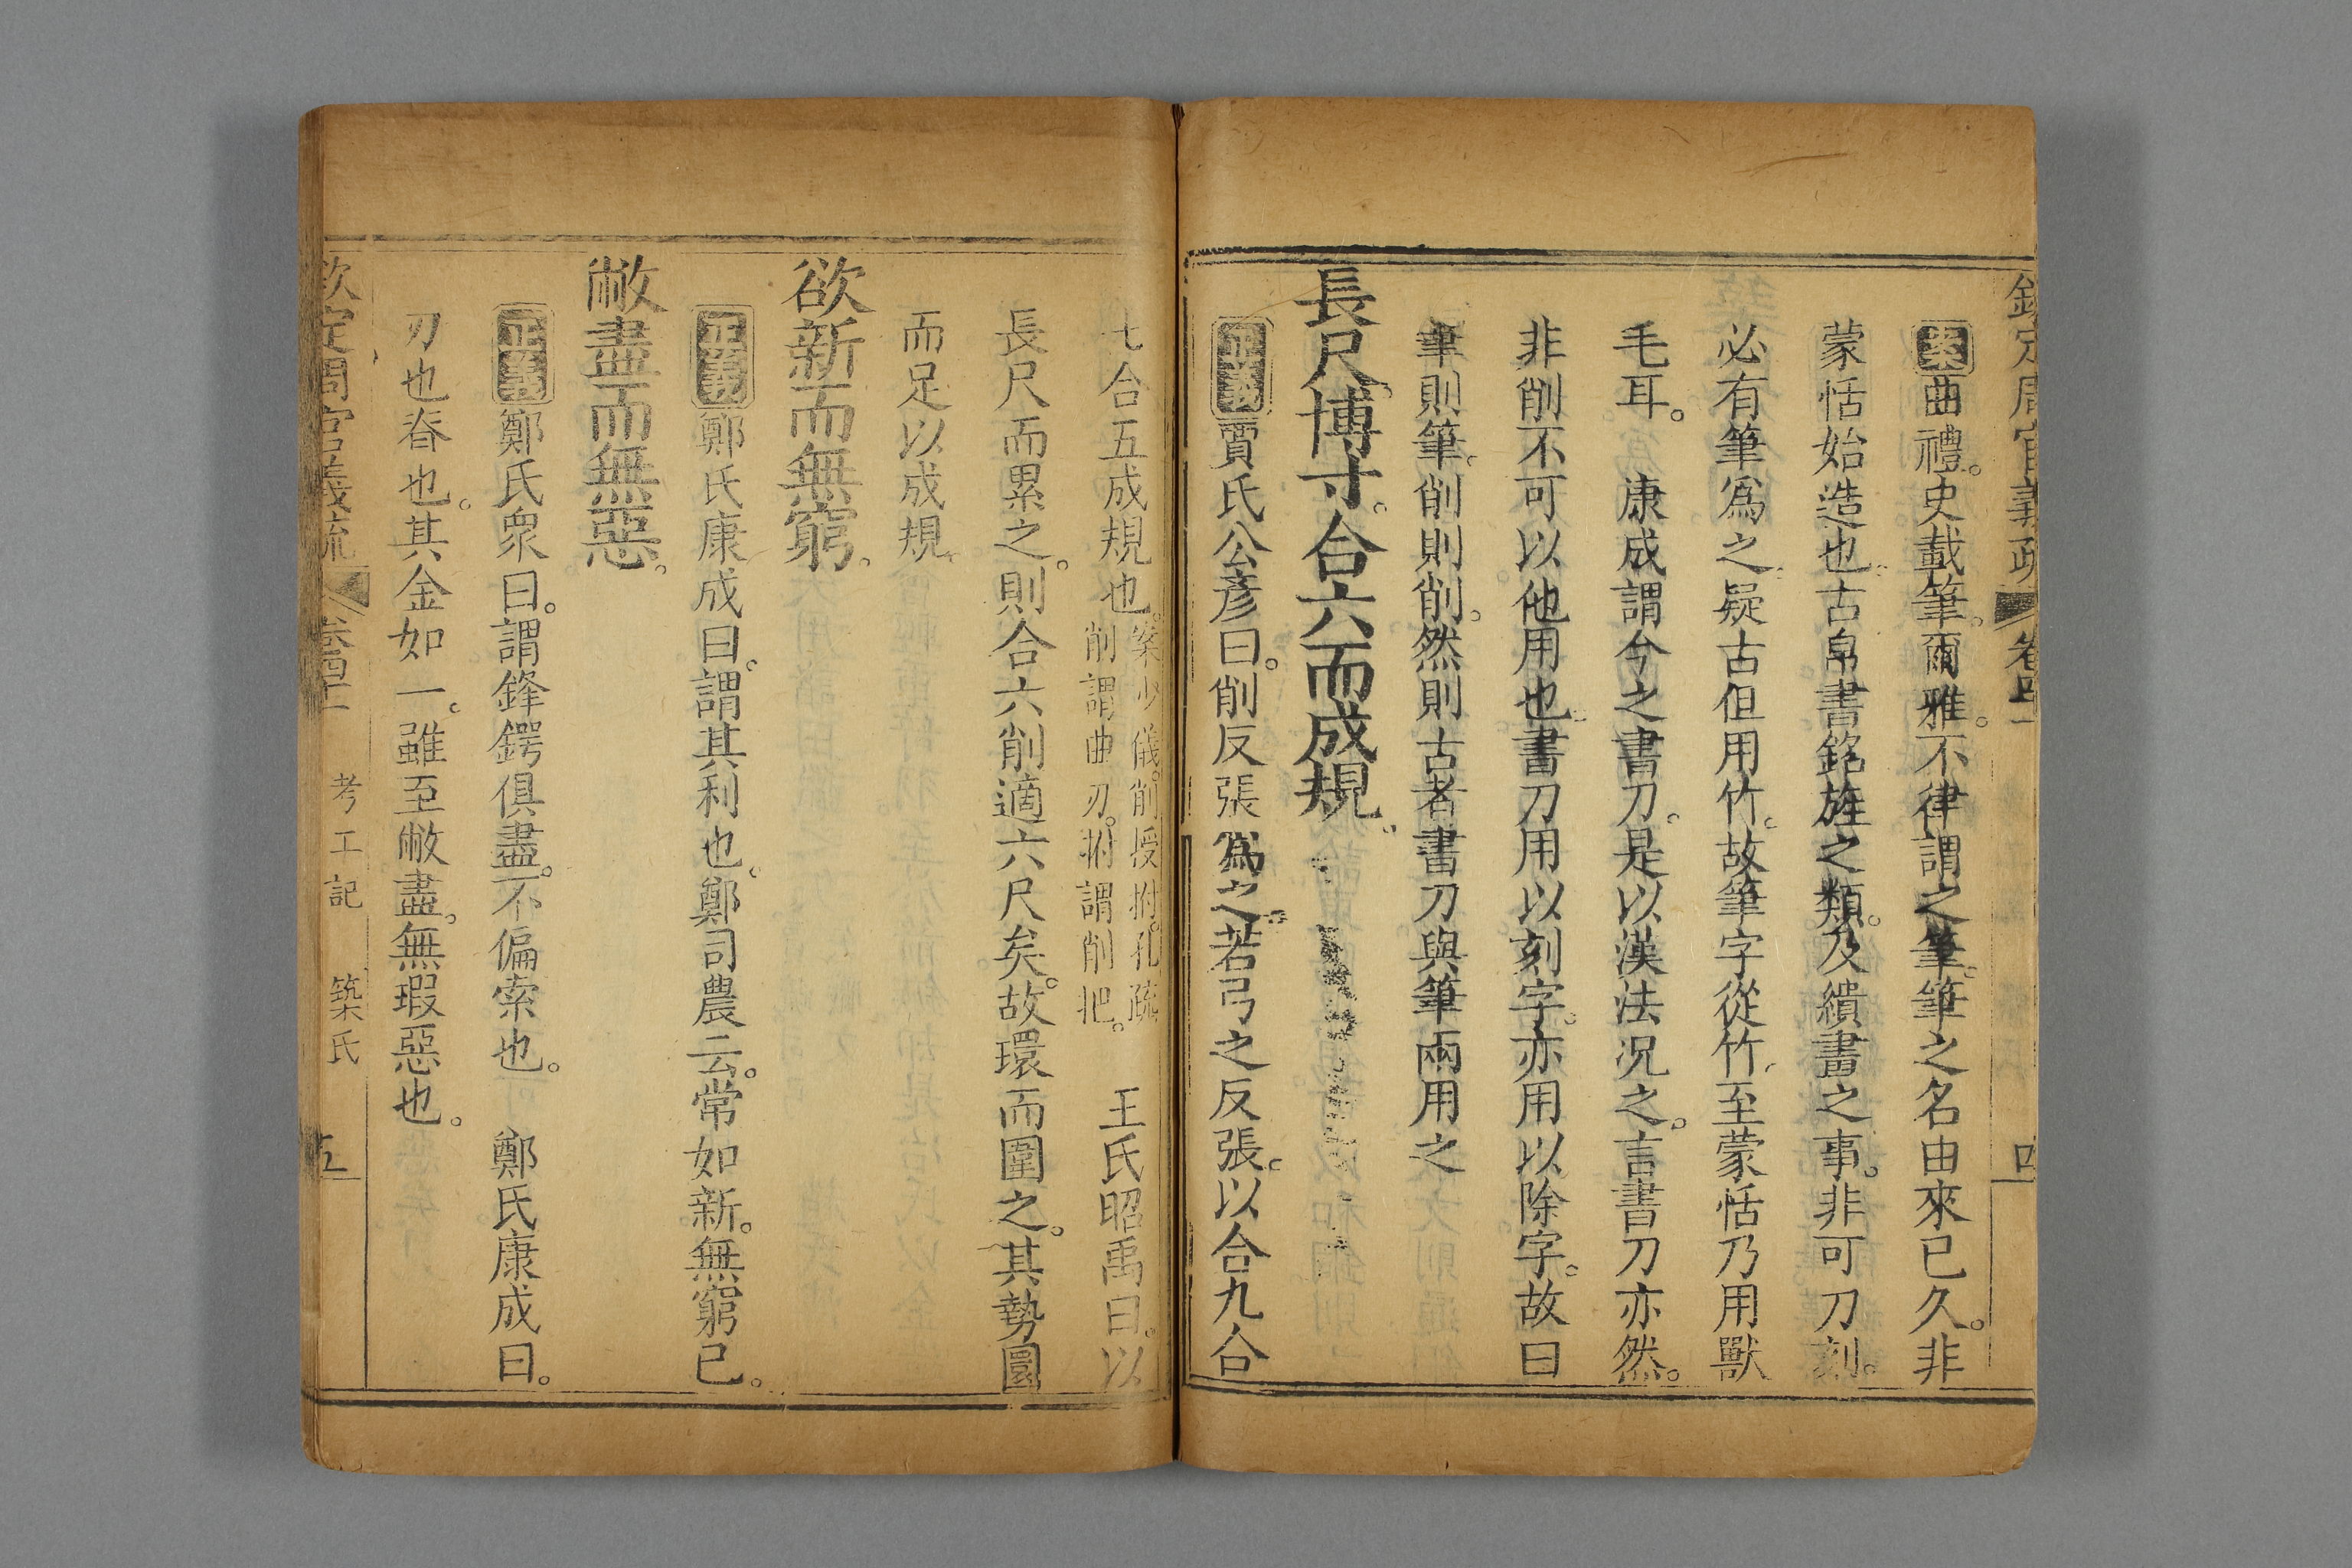 欽定周官義疏 卷四十 四
案曲禮。史載筆。爾雅。不律謂之筆。筆之名由來已久。非
蒙恬始造也。古帛書銘旌之類。及繢畫之事。非可刀刻。
必有筆爲之。疑古但用竹。故筆字從竹。至蒙恬乃用獸
毛耳。 康成謂今之書刀。是以漢法况之。言書刀亦然。
非削不可以他用也。書刀用以刻字。亦用以除字。故曰
筆則筆。削則削。然則古者書刀與筆兩用之
長尺。博寸。合六而成規。
正義賈氏公彥曰。削反張爲之。若弓之反張。以合九合
七合五成規也。案少儀。削授拊。孔疏
削謂曲刃。拊謂削把。 王氏昭禹曰。以
長尺而累之。則合六削適六尺矣。故環而圍之。其勢圜
而足以成規。
欲新而無窮。
正義鄭氏康成曰。謂其利也。鄭司農云。常如新。無窮已。
敝盡而無惡。
正義鄭氏衆曰。謂鋒鍔俱盡。不偏索也。 鄭氏康成曰。
刃也脊也。其金如一。雖至敝盡。無瑕惡也。
欽定周官義疏 卷四十 考工記 築氏 五